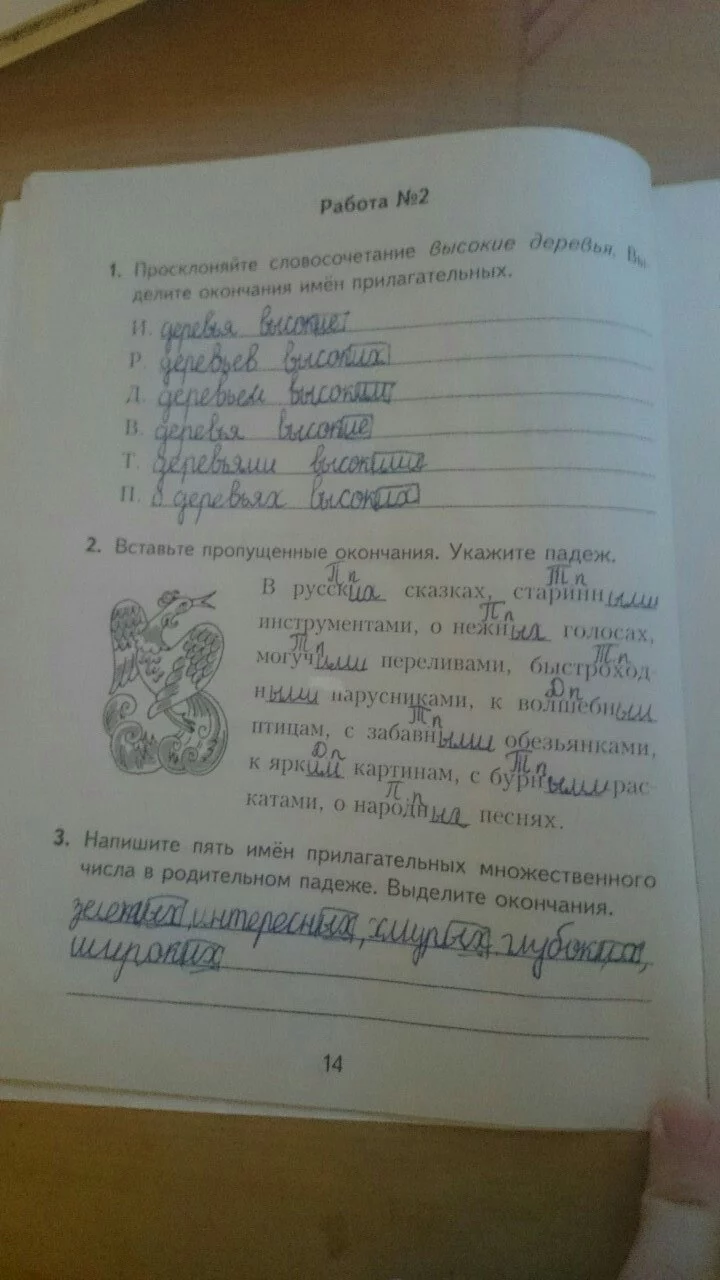 Работа №2
1. Просклоняйте словосочетание высокие деревья. Вы-
делите окончания имён прилагательных.
И. деревья высокие
Р. деревьев высоких
Д. деревьем высоким
В. деревья высокие
Т. деревьями высокими
П. в деревьях высоких
2. Вставьте пропущенные окончания. Укажите падеж.
П п Т п
В русских сказках, старинными
П п
инструментами, о нежных голосах,
Т п Т п
могучими переливами, быстроход-
Д п
ными парусниками, к волшебным
Т п
птицам, с забавными обезьянками,
Д п Т п
к ярким картинам, с бурными рас-
П. п
катами, о народных песнях.
3. Напишите пять имён прилагательных множественного
числа в родительном падеже. Выделите окончания.
зеленых, интересных, хмурых, глубоких,
широких
14